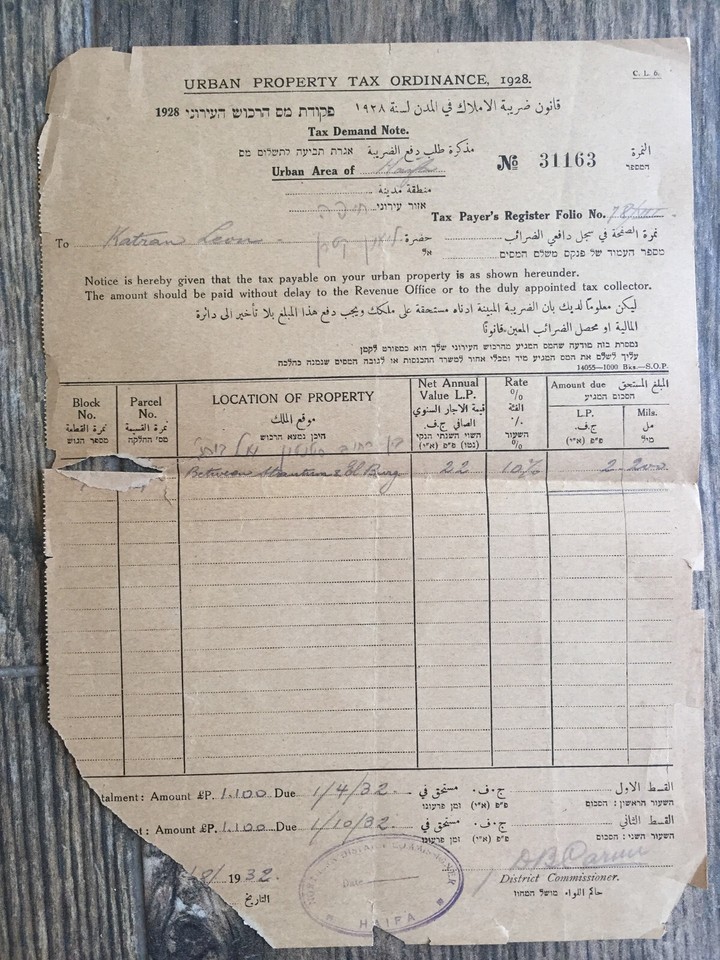 C. L. 6.
URBAN PROPERTY TAX ORDINANCE, 1928.
قانون ضريبة الاملاك في المدن لسنة ١٩٢٨ פקודת מס הרכוש העירוני 1928
Tax Demand Note.
مذكرة طلب دفع الضريبة אגרת תביעה לתשלום מס
النمرة
№ 31163
המספר
Urban Area of Haifa
منطقة مدينة
אזור עירוני חיפה
Tax Payer's Register Folio No.
نمرة الصفحة في سجل دافعي الضرائب
To Katran Leon حضرة
אל
מספר העמוד של פנקס משלם המסים
Notice is hereby given that the tax payable on your urban property is as shown hereunder.
The amount should be paid without delay to the Revenue Office or to the duly appointed tax collector.
ليكن معلوماً لديك بان الضريبة المبينة ادناه مستحقة على ملكك ويجب دفع هذا المبلغ بلا تأخير الى دائرة
المالية او محصل الضرائب المعين قانونا
נמסרת בזה מודעה שהמס המגיע מהרכוש העירוני שלך הוא כמפורט לקמן
עליך לשלם את המס המגיע מיד ומבלי אחור למשרד ההכנסות או לגובה המסים שנמנה כהלכה
14055—1000 Bks.—S.O.P.
Block No.
نمرة القطعة
מספר הגוש
Parcel No.
نمرة القسيمة
מס' החלקה
LOCATION OF PROPERTY
موقع الملك
היכן נמצא הרכוש
Net Annual Value L.P.
قيمة الاجار السنوي
الصافي ج.ف.
השווי השנתי הנקי
(נטו) פ״פ (א״י)
Rate
%
الفئة
٪
השעור
%
Amount due المبلغ المستحق
הסכום המגיע
L.P.
ج.ف.
פ״פ (א״י)
Mils.
مل
מיל
Between & El Burg 22 10% 2 200
talment: Amount £P. 1.100 Due 1/4/32 مستحق في ج.ف. القسط الاول
זמן פרעונו פ״פ (א״י) השעור הראשון: הסכום
t: Amount £P. 1.100 Due 1/10/32 مستحق في ج.ف. القسط الثاني
זמן פרעונו פ״פ (א״י) השעור השני: הסכום
/8/ 1932
التاريخ
Date
HAIFA
District Commissioner.